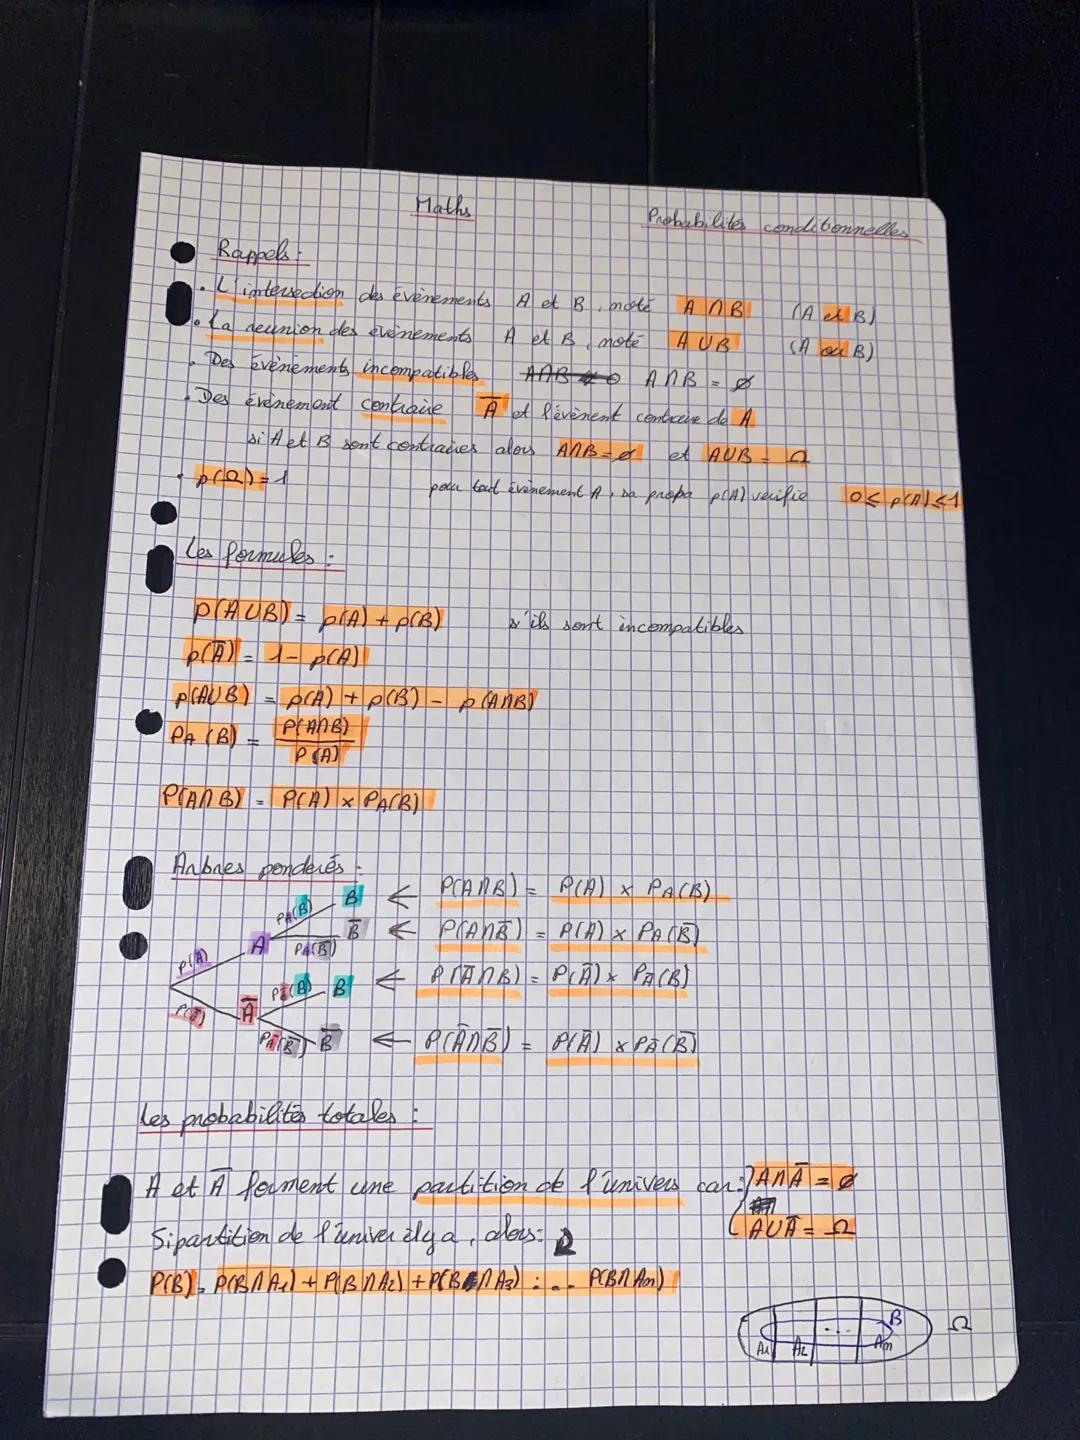 Maths
Probabilités conditionnelles
Rappels :
• L'intersection des évènements A et B, noté A ∩ B (A et B)
• La reunion des évènements A et B, noté A ∪ B (A ou B)
• Des évènements incompatibles A ∩ B = ∅
• Des évènement contraire A̅ et l'évènent contraire de A
si A et B sont contraires alors A∩B = ∅ et A∪B = Ω
• p(Ω) = 1 pour tout évènement A, sa propa p(A) verifie 0 ≤ p(A) ≤ 1
Les formules :
p(A∪B) = p(A) + p(B) s'ils sont incompatibles
p(A̅) = 1 - p(A)
p(A∪B) = p(A) + p(B) - p(A∩B)
PA (B) = P(A∩B) / P(A)
P(A∩B) = P(A) × PA(B)
Arbres ponderés :
P(A) A PA(B) B ← P(A∩B) = P(A) × PA(B)
PA(B̅) B̅ ← P(A∩B̅) = P(A) × PA(B̅)
P(A̅) A̅ PA̅(B) B ← P(A̅∩B) = P(A̅) × PA̅(B)
PA̅(B̅) B̅ ← P(A̅∩B̅) = P(A̅) × PA̅(B̅)
Les probabilités totales :
A et A̅ forment une partition de l'univers car : { A∩A̅ = ∅
A∪A̅ = Ω
Si partition de l'univer il y a, alors :
P(B) = P(B∩A1) + P(B∩A2) + P(B∩A3) : ... P(B∩An)
A1 A2 ... An B Ω